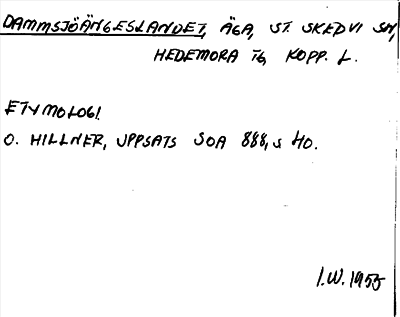 DAMMSJÖÄNGESLANDET, ÄGA, ST. SKEDVI SN,
HEDEMORA TG, KOPP. L.
ETYMOLOGI.
O. HILLNER, UPPSATS SOA 888, S 40.
I.W. 1955